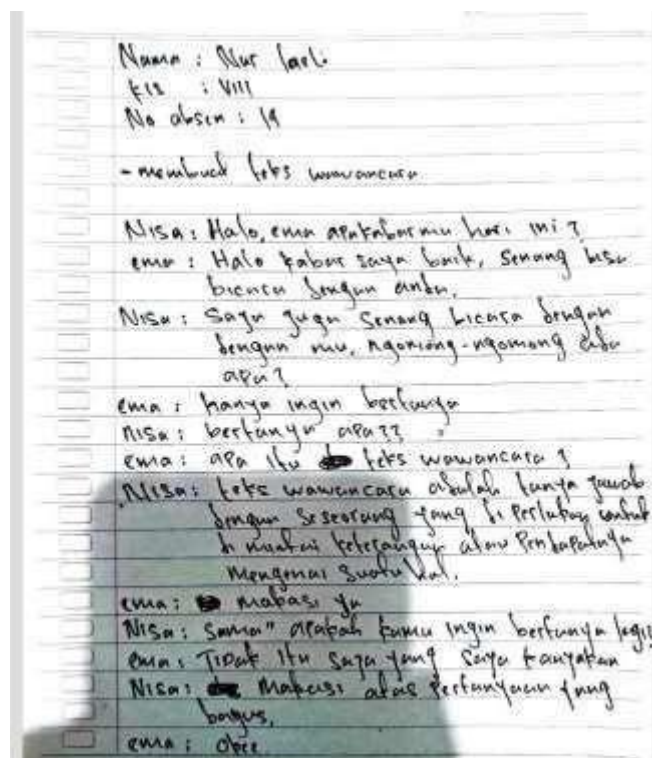 Nama : Nur laeli
kls : VIII
No absen : 19
- membuat teks wawancara
Nisa : Halo, ema apakabarmu hari ini ?
ema : Halo kabar saya baik, senang bisa
bicara dengan anda.
Nisa : Saya juga senang bicara dengan
dengan mu, ngomong-ngomong ada
apa ?
ema : hanya ingin bertanya
nisa : bertanya apa ??
ema : apa itu teks wawancara ?
Nisa : teks wawancara adalah tanya jawab
dengan seseorang yang di perlukan untuk
di mintai keterangan atau Pendapatnya
mengenai suatu hal.
ema : makasi ya
Nisa : Sama" apakah kamu ingin bertanya lagi?
ema : Tidak itu saja yang saya tanyakan
Nisa : Makasi atas Pertanyaan yang
bagus.
ema : okee